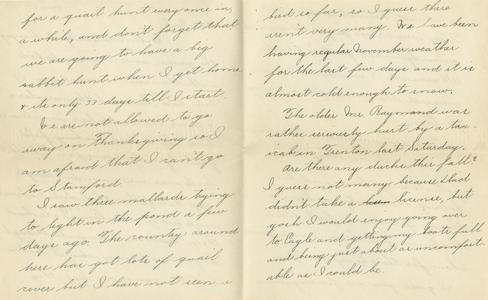 for a quail hunt way once in
a while, and don't forget that
we are going to have a big
rabbit hunt when I get home
& its only 33 days till I start.
We are not allowed to go
away on Thanksgiving so I
am afraid that I can't go
to Stamford.
I saw three mallards trying
to light in the pond a few
days ago. The country around
here has got lots of quail
cover but I have not seen a
bird so far, so I guess there
arent very many. We have been
having regular November weather
for the last few days and it is
almost cold enough to snow.
The older Mr. Raymond was
rather seriously hurt by a tax-
icab in Trenton last Saturday.
Are there any ducks this fall?
I guess not many because Dad
didn't take a license, but
gosh I would enjoy going over
to Eagle and getting my boots full
and being just about as uncomfort-
able as I could be.